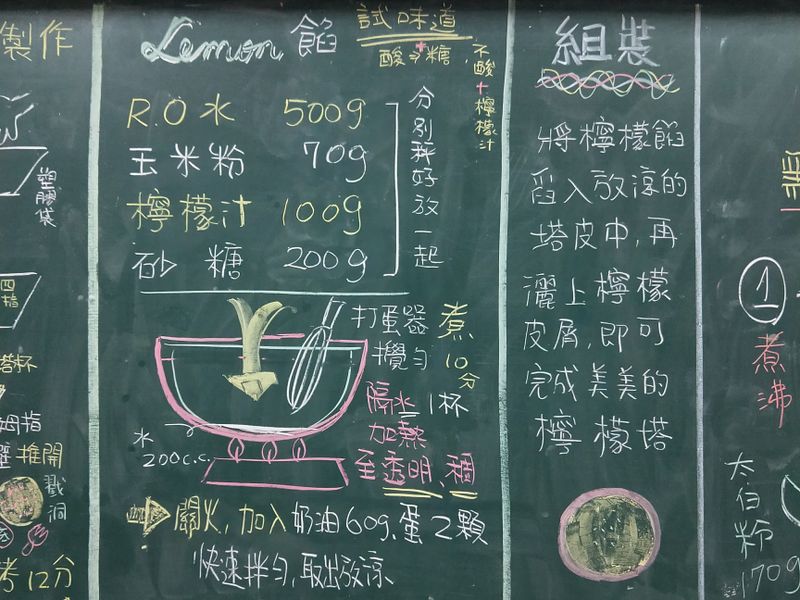 製作
塑膠袋
四指
塔杯
姆指
推開
戳洞
烤12分
Lemon 餡
試味道
酸→糖,
不酸+檸檬汁
R.O水 500g
玉米粉 70g
檸檬汁 100g
砂糖 200g
分別秤好放一起
打蛋器
攪勻
煮10分
隔水1杯
加熱
至透明、稠
水
200c.c.
關火,加入奶油60g、蛋2顆
快速拌勻,取出放涼
組裝
將檸檬餡
舀入放涼的
塔皮中,再
灑上檸檬
皮屑,即可
完成美美的
檸檬塔
1
煮沸
太白粉
170g